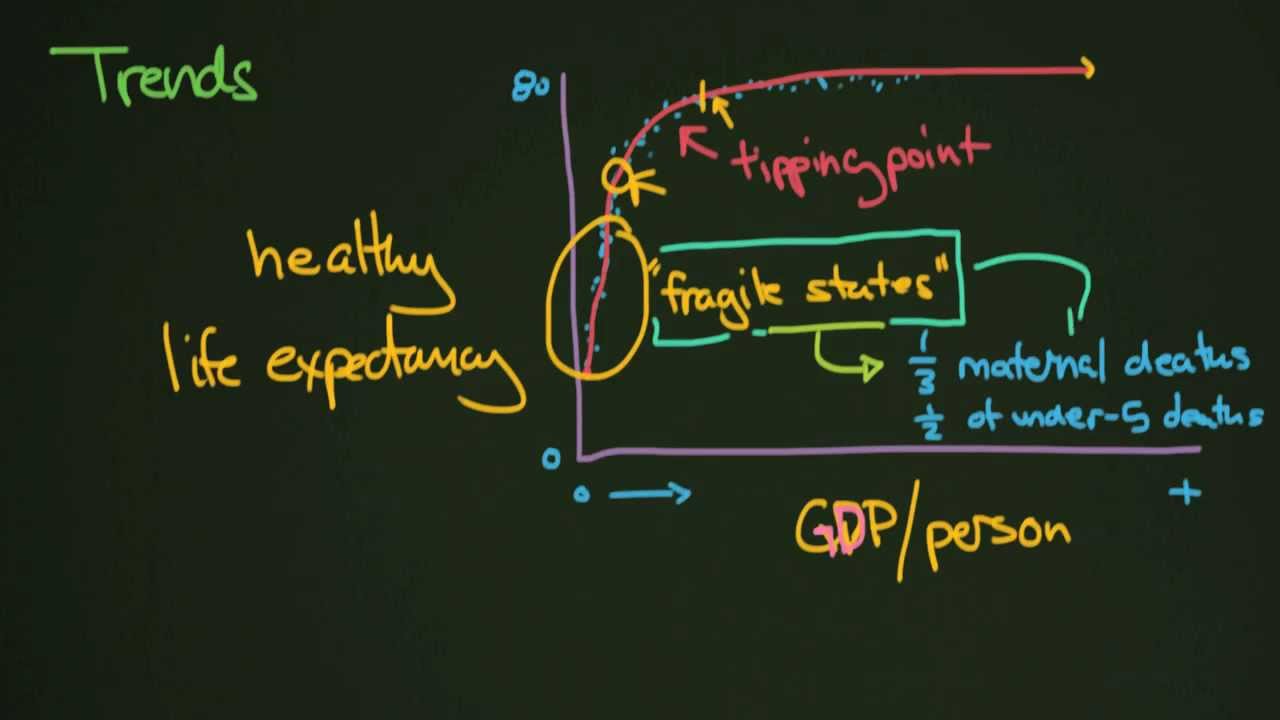 Trends
80
tipping point
healthy
life expectancy
"fragile states"
1/3 maternal deaths
1/2 of under-5 deaths
0
0
+
GDP/person